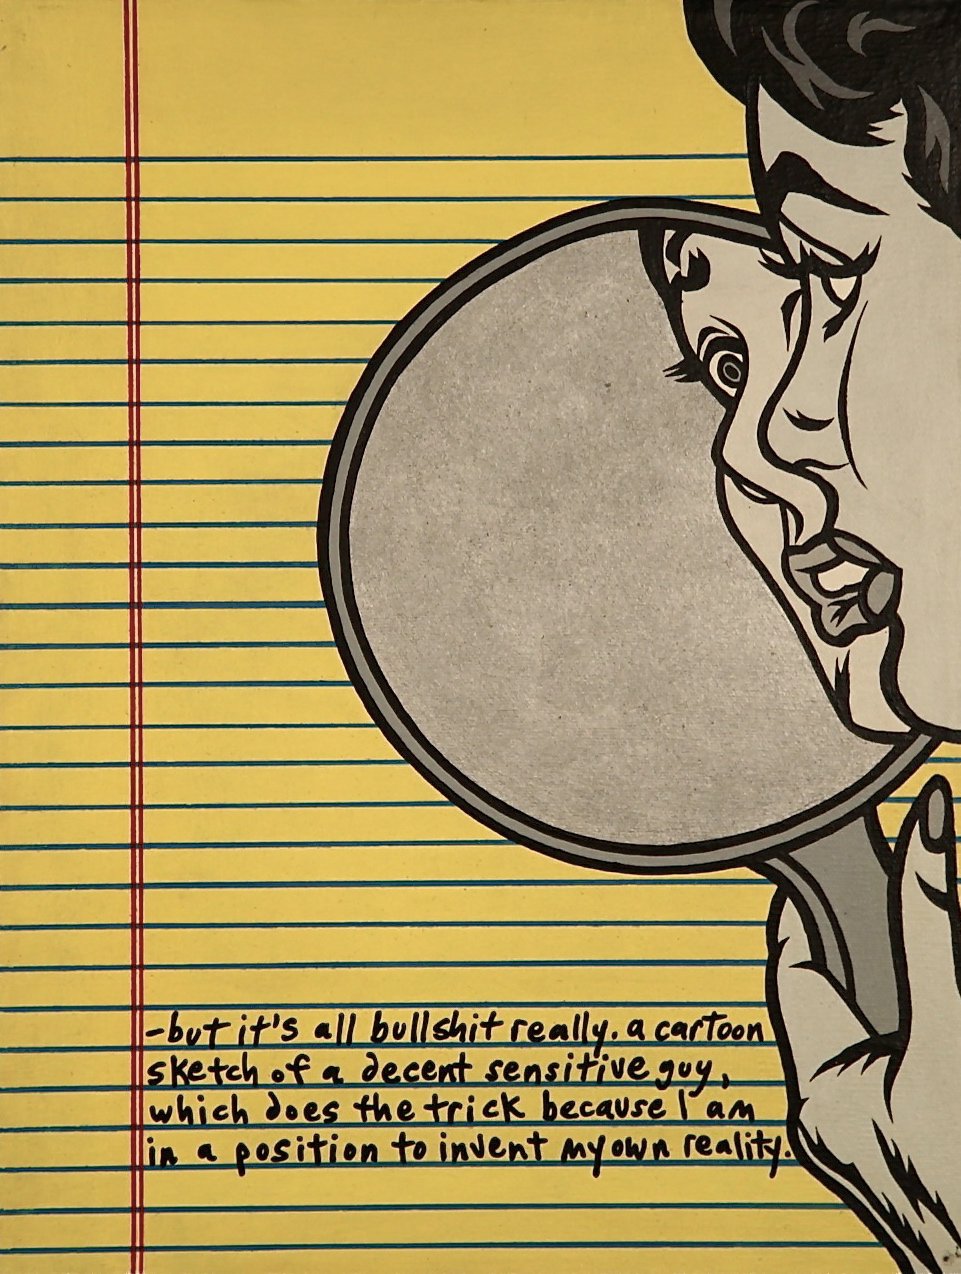 -but it's all bullshit really. a cartoon
sketch of a decent sensitive guy,
which does the trick because I am
in a position to invent my own reality.